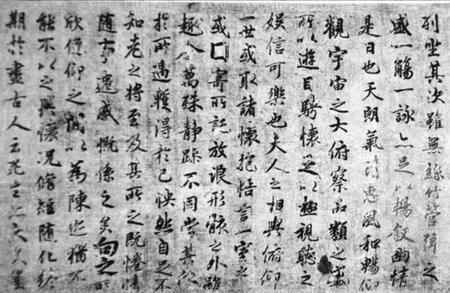 列坐其次雖無絲竹管弦之
盛一觴一詠亦足以暢敘幽情
是日也天朗氣清惠風和暢仰
觀宇宙之大俯察品類之盛
所以遊目騁懷足以極視聽之
娛信可樂也夫人之相與俯仰
一世或取諸懷抱悟言一室之
或寄所託放浪形骸之外雖
趣舍萬殊靜躁不同當其欣
於所遇暫得於己快然自足不
知老之將至及其所之既惓情
隨事遷感慨係之矣向之所
欣俛仰之間以為陳迹猶不
能不以之興懷況脩短隨化終
期於盡古人云死生亦大矣豈